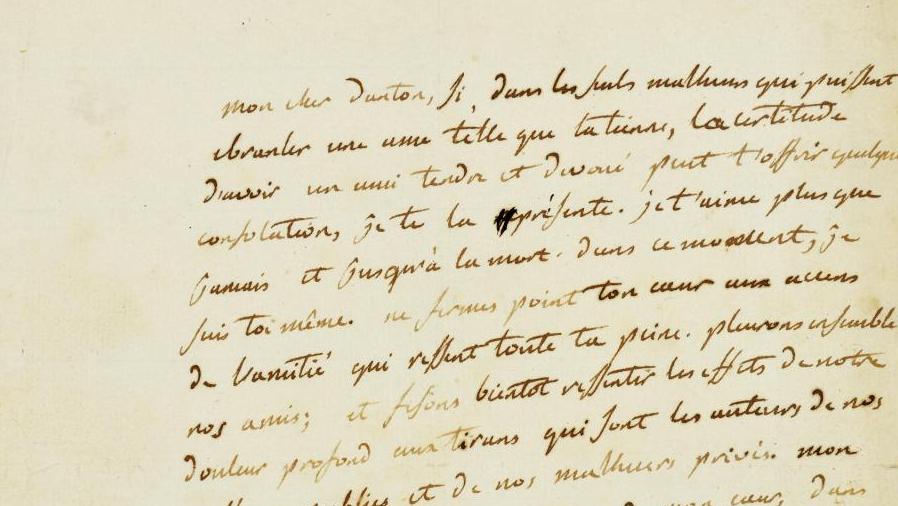 mon cher Danton, si, dans les seuls malheurs qui puissent
ebranler une ame telle que la tienne, la certitude
d'avoir un ami tendre et devoué peut t'offrir quelque
consolation, je te la présente. je t'aime plus que
jamais et jusqu'à la mort. dans ce moment, je
suis toi même. ne fermes point ton cœur aux accens
de l'amitié qui ressent toute ta peine. pleurons ensemble
nos amis; et fesons bientot ressentir les effets de notre
douleur profond aux tirans qui sont les auteurs de nos
et de nos malheurs privés. mon
cœur, dans